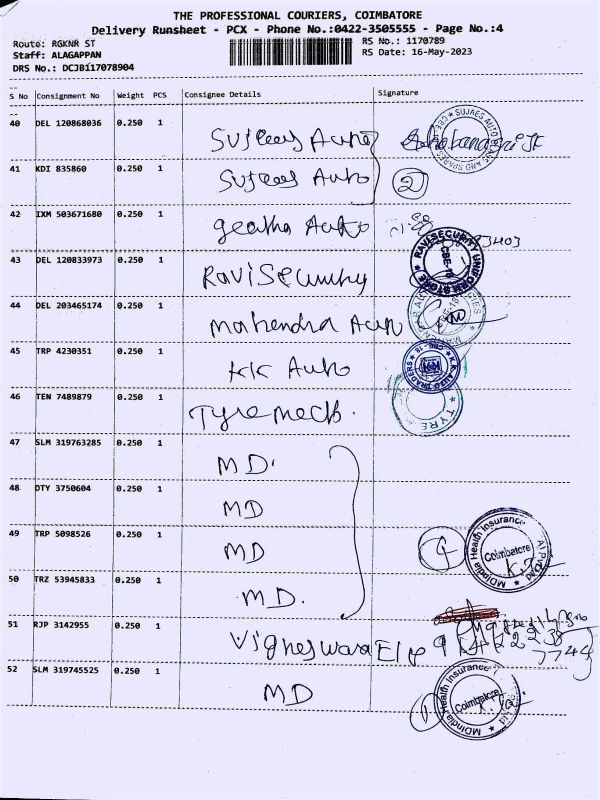 THE PROFESSIONAL COURIERS, COIMBATORE
Delivery Runsheet - PCX - Phone No.:0422-3505555 - Page No.:4
Route: RGKNR ST
RS No.: 1170789
Staff: ALAGAPPAN
RS Date: 16-May-2023
DRS No.: DCJB117078904
S No Consignment No Weight PCS Consignee Details Signature
40 DEL 120868036 0.250 1 Sujaes Auto
41 KDI 835860 0.250 1 Sujaes Auto 2
42 IXM 503671680 0.250 1 geetha Auto
43 DEL 120833973 0.250 1 Ravi Security RAVI SECURITY UNIFORM STORE CBE-18
44 DEL 203465174 0.250 1 Mahendra Auto
45 TRP 4230351 0.250 1 KK Auto K.K. AUTO TRADERS CBE-18 KK
46 TEN 7489879 0.250 1 Tyre mech. TYRE
47 SLM 319763285 0.250 1 MD.
48 DTY 3750604 0.250 1 MD
49 TRP 5098526 0.250 1 MD 4 MDIndia Health Insurance Coimbatore
50 TRZ 53945833 0.250 1 MD.
51 RJP 3142955 0.250 1 Vigneswara Ele
52 SLM 319745525 0.250 1 MD 1 MDIndia Health Insurance Coimbatore